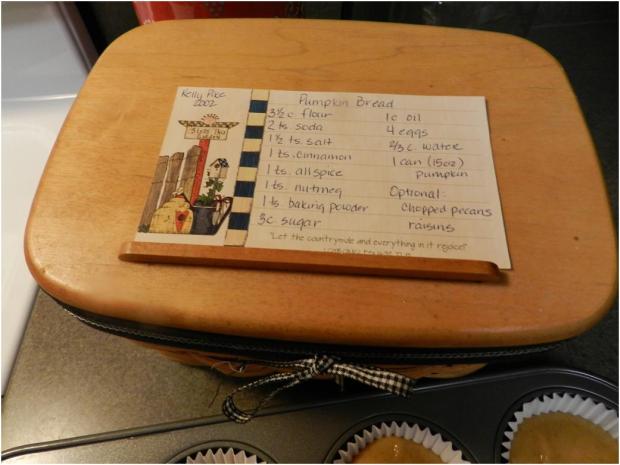 Kelly
2002
Bless This
Garden
Pumpkin Bread
3½ c. flour
2 ts. soda
1½ ts. salt
1 ts. cinnamon
1 ts. allspice
1 ts. nutmeg
1 ts. baking powder
3c. sugar
1c oil
4 eggs
2/3 c. water
1 can (15oz)
pumpkin
Optional:
Chopped pecans
raisins
"Let the countryside and everything in it rejoice!"